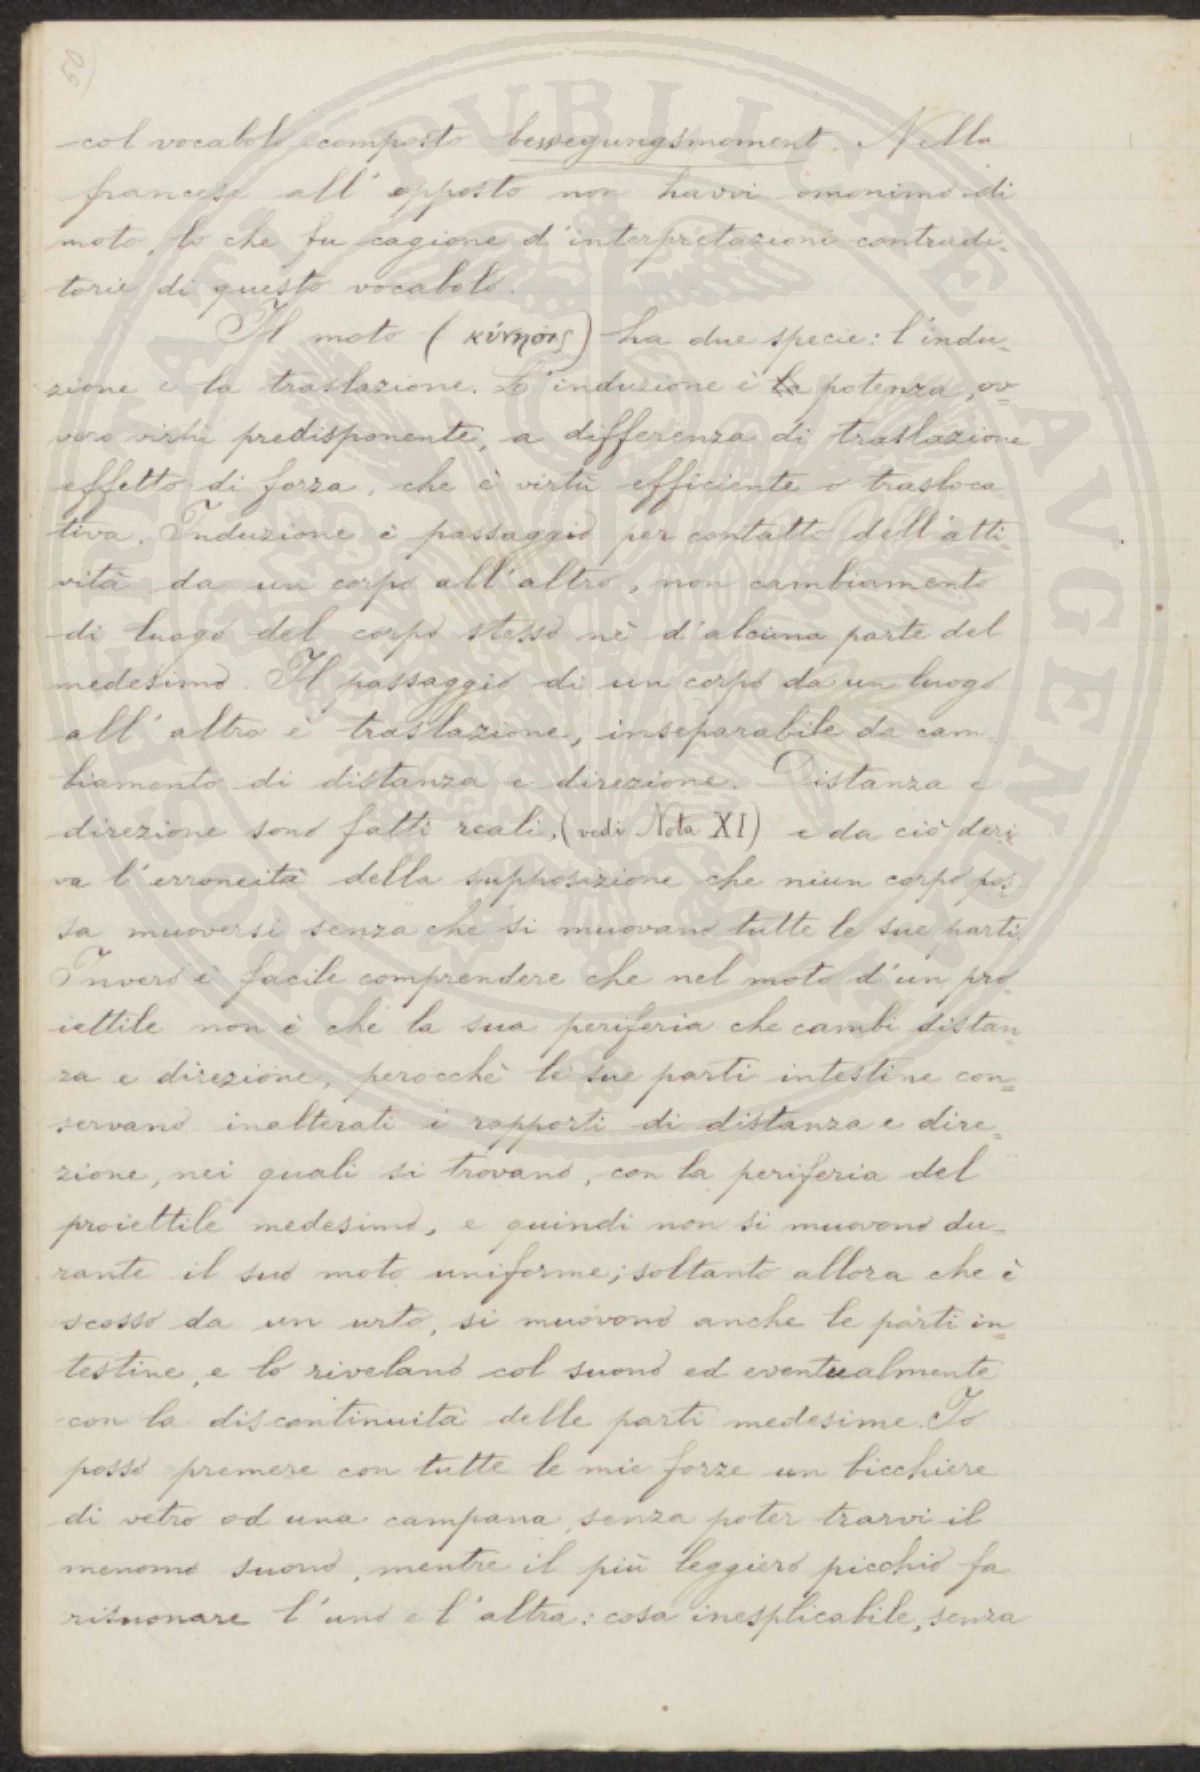 50)
col vocabolo composto bewegungsmoment. Nella
francese all'opposto non havvi omonimo di
moto, lo che fu cagione d'interpretazioni contradi-
torie di questo vocabolo.
Il moto (κύνησις) ha due specie: l'indu-
zione e la traslazione. L'induzione è la potenza, ov=
vero virtù predisponente, a differenza di traslazione
effetto di forza, che è virtù efficiente o trasloca
tiva. Induzione è passaggio per contatto dell'atti-
vità da un corpo all'altro, non cambiamento
di luogo del corpo stesso nè d'alcuna parte del
medesimo. Il passaggio di un corpo da un luogo
all'altro è traslazione, inseparabile da cam-
biamento di distanza e direzione. Distanza e
direzione sono fatti reali, (vedi Nota XI) e da ciò deri
va l'erroneità della supposizione che niun corpo pos
sa muoversi senza che si muovano tutte le sue parti.
Invero è facile comprendere che nel moto d'un pro
iettile non è che la sua periferia che cambi distan
za e direzione, perocchè le sue parti intestine con=
servano inalterati i rapporti di distanza e dire=
zione, nei quali si trovano, con la periferia del
proiettile medesimo, e quindi non si muovono du=
rante il suo moto uniforme; soltanto allora che è
scosso da un urto, si muovono anche le parti in=
testine, e lo rivelano col suono ed eventualmente
con la discontinuità delle parti medesime. Io
posso premere con tutte le mie forze un bicchiere
di vetro od una campana, senza poter trarvi il
menomo suono, mentre il più leggiero picchio fa
risuonare l'uno e l'altra: cosa inesplicabile, senza